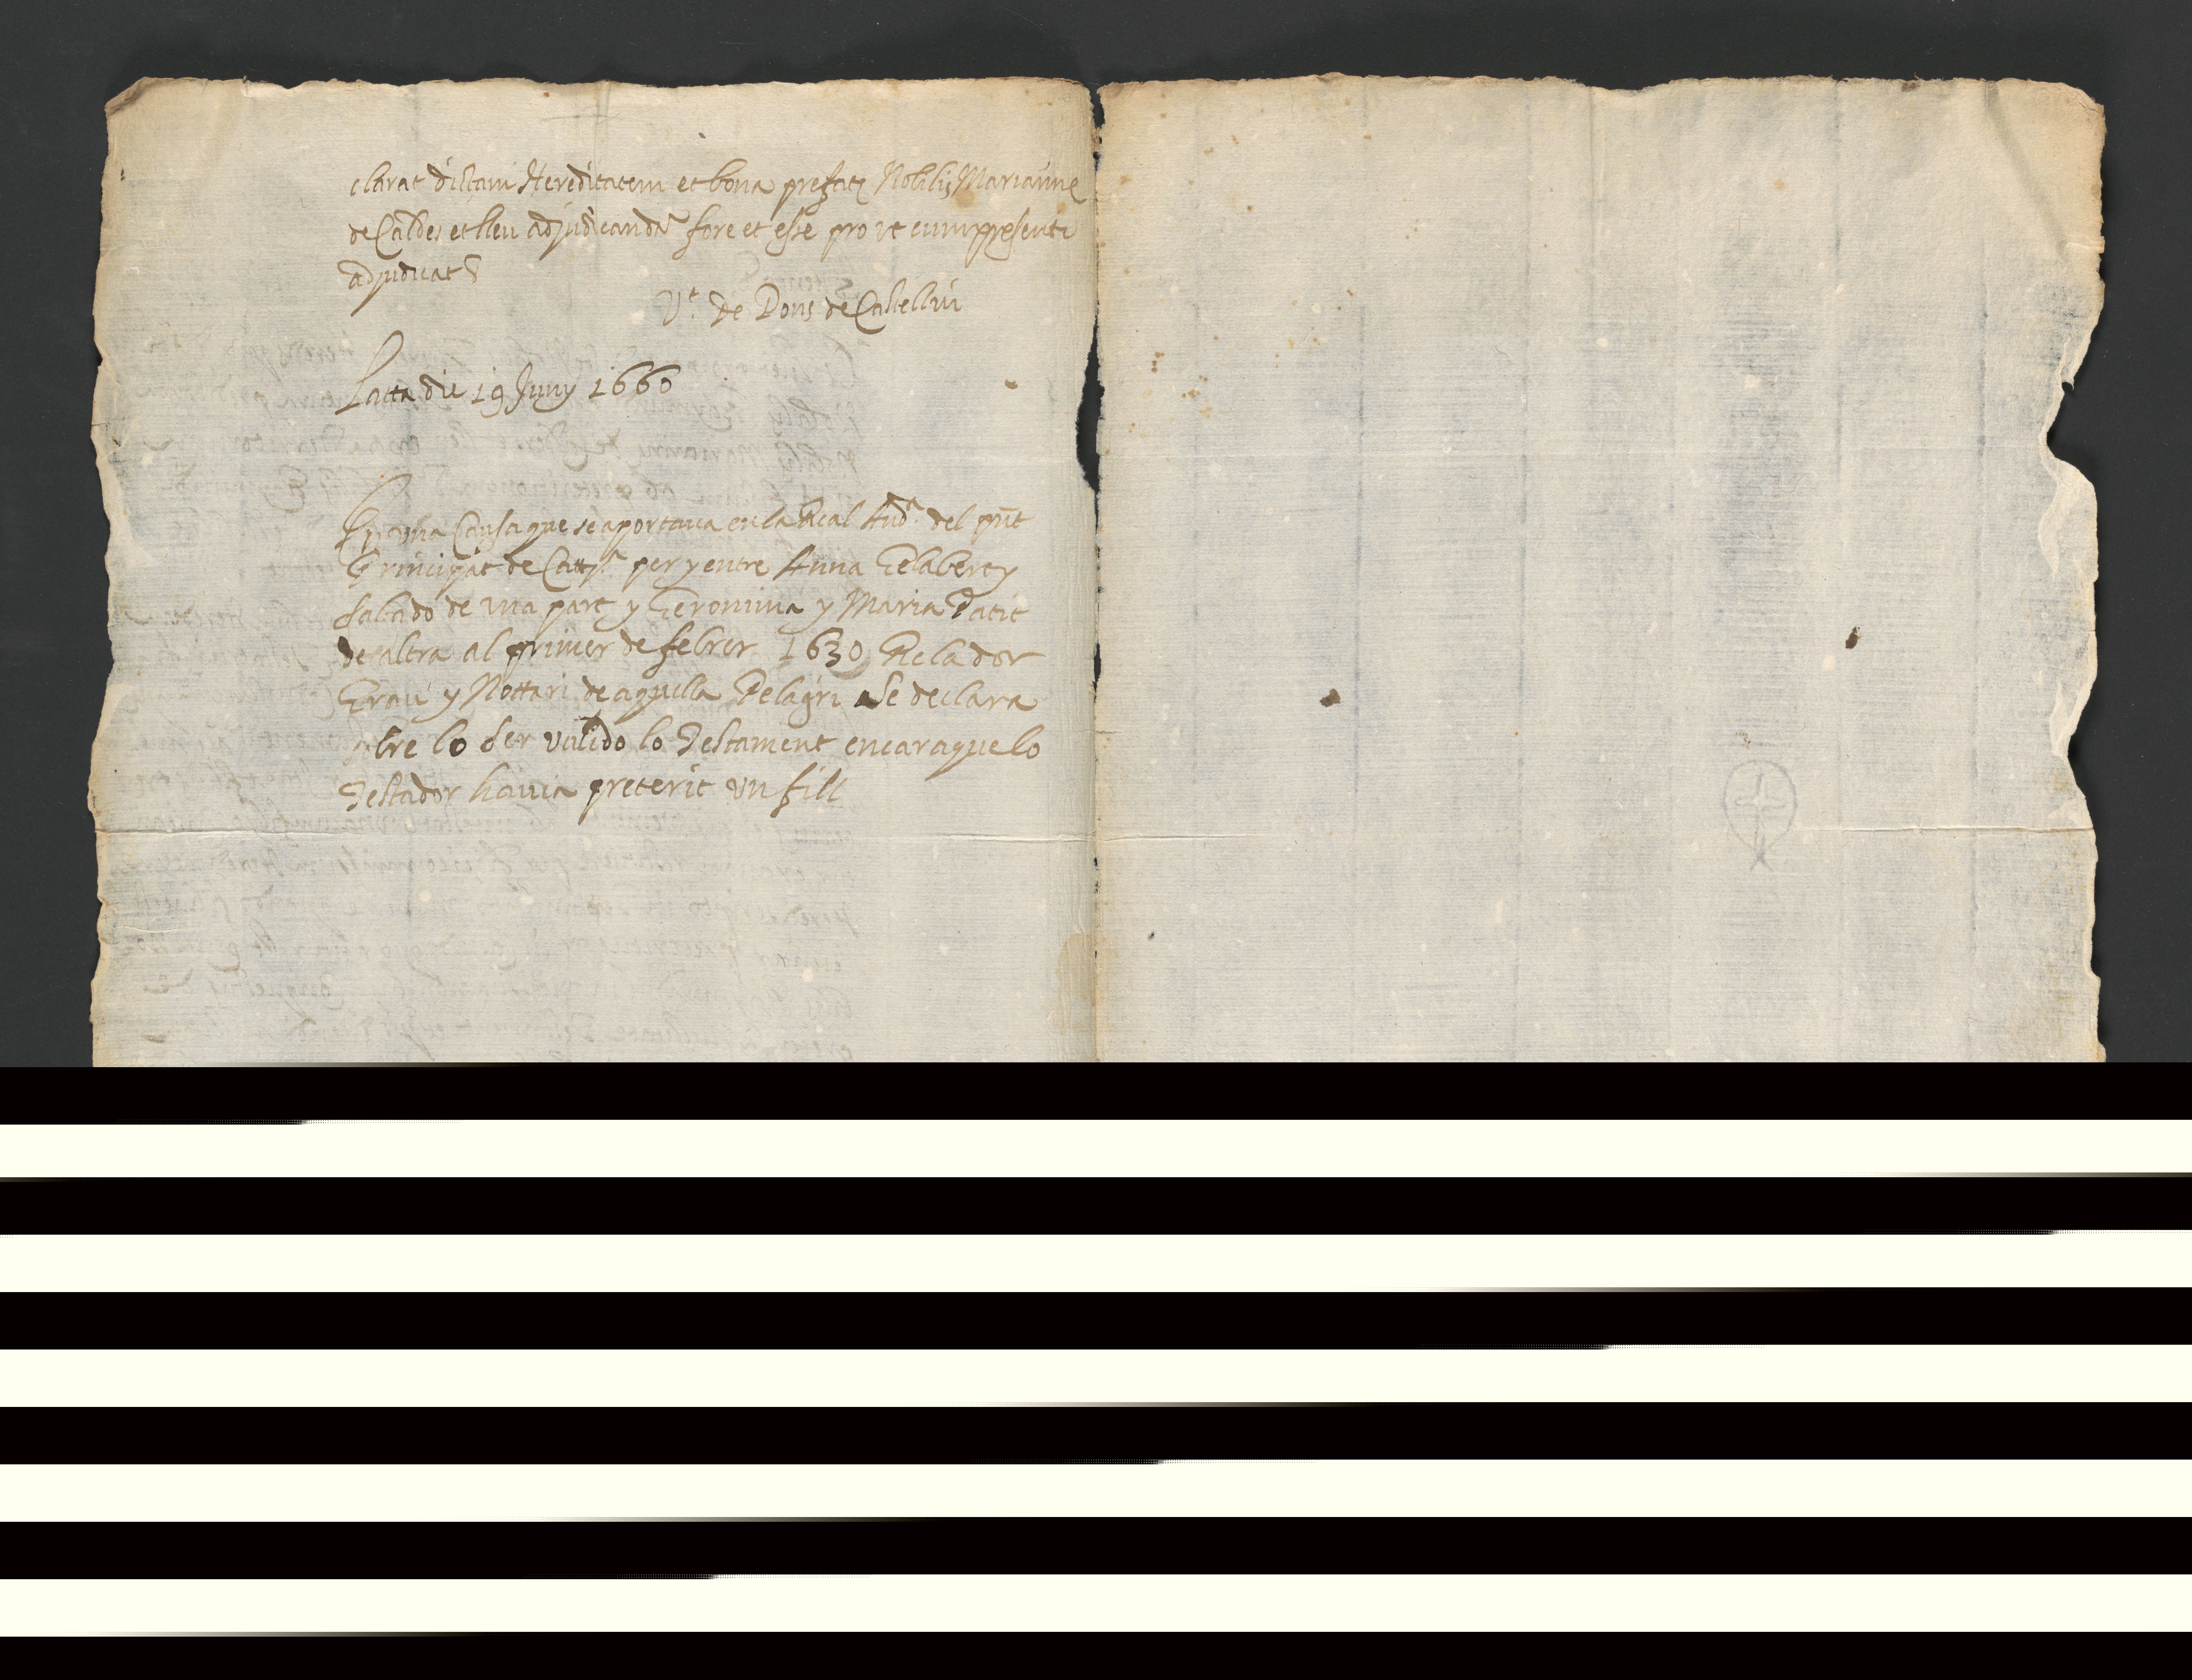 clarat dictam Hereditatem et bona prefatę Nobilis Mariannę
de Caldes et lleu adjudicanda fore et esse pro ut cum presenti
adjudicat
Vt. de Pons de Castellvi
Latta die 19 Juny 1660
En una Causa que se aportava en la Real Auda. del pnt
Principat de Catta. per y entre Anna Gelabert y
Salado de una part y Geronima y Maria Patit
de altra al primer de febrer 1630 Relador
Grau y Nottari de aquella Pelagri Se declara
sobre lo Ser valido lo Testament encara que lo
Testador havia preterit un fill